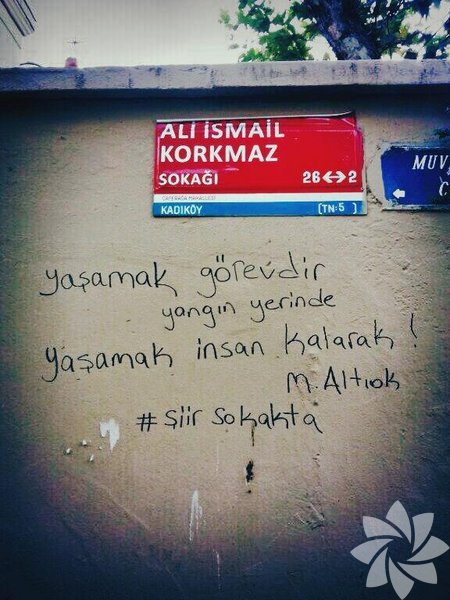 ALİ İSMAİL
KORKMAZ
SOKAĞI 26↔2
CAFERAĞA MAHALLESİ
KADIKÖY (TN:5)
MUV
C
yaşamak görevdir
yangın yerinde
yaşamak insan kalarak !
M. Altıok
# şiir sokakta